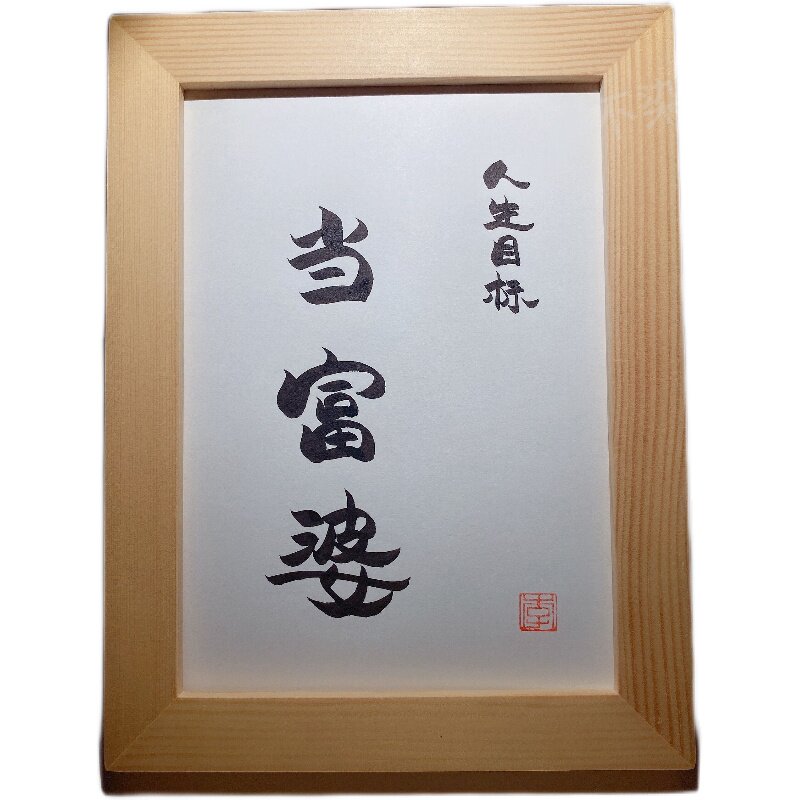 人生目标
当富婆